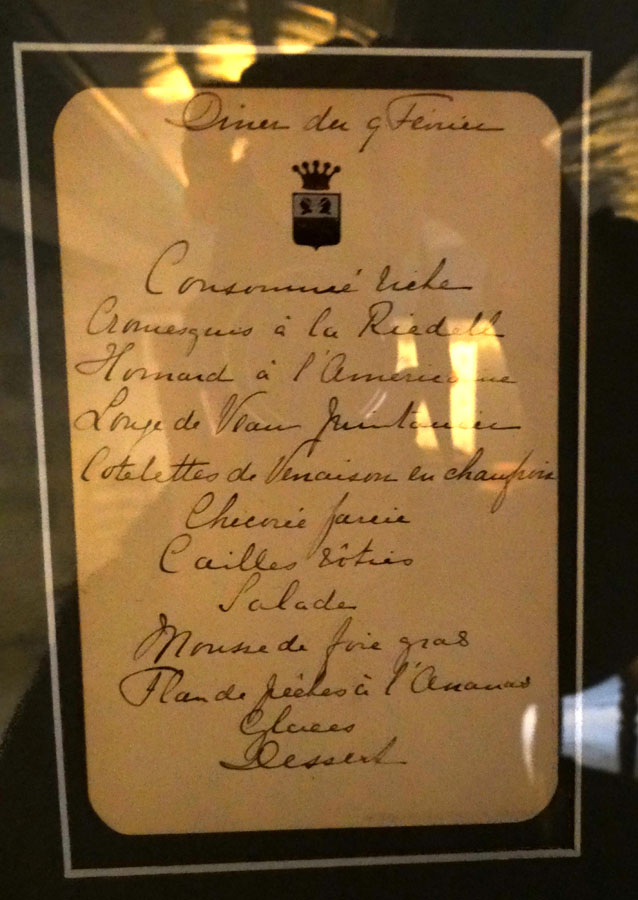 Diner du 9 Février
Consommé riche
Cromesquis à la Riedell
Homard à l'Américaine
Longe de Veau Printanier
Cotelettes de Venaison en chaufroix
Checorée farcie
Cailles rôties
Salade
Mousse de foie gras
Flan de pêches à l'Ananas
Glaces
Dessert